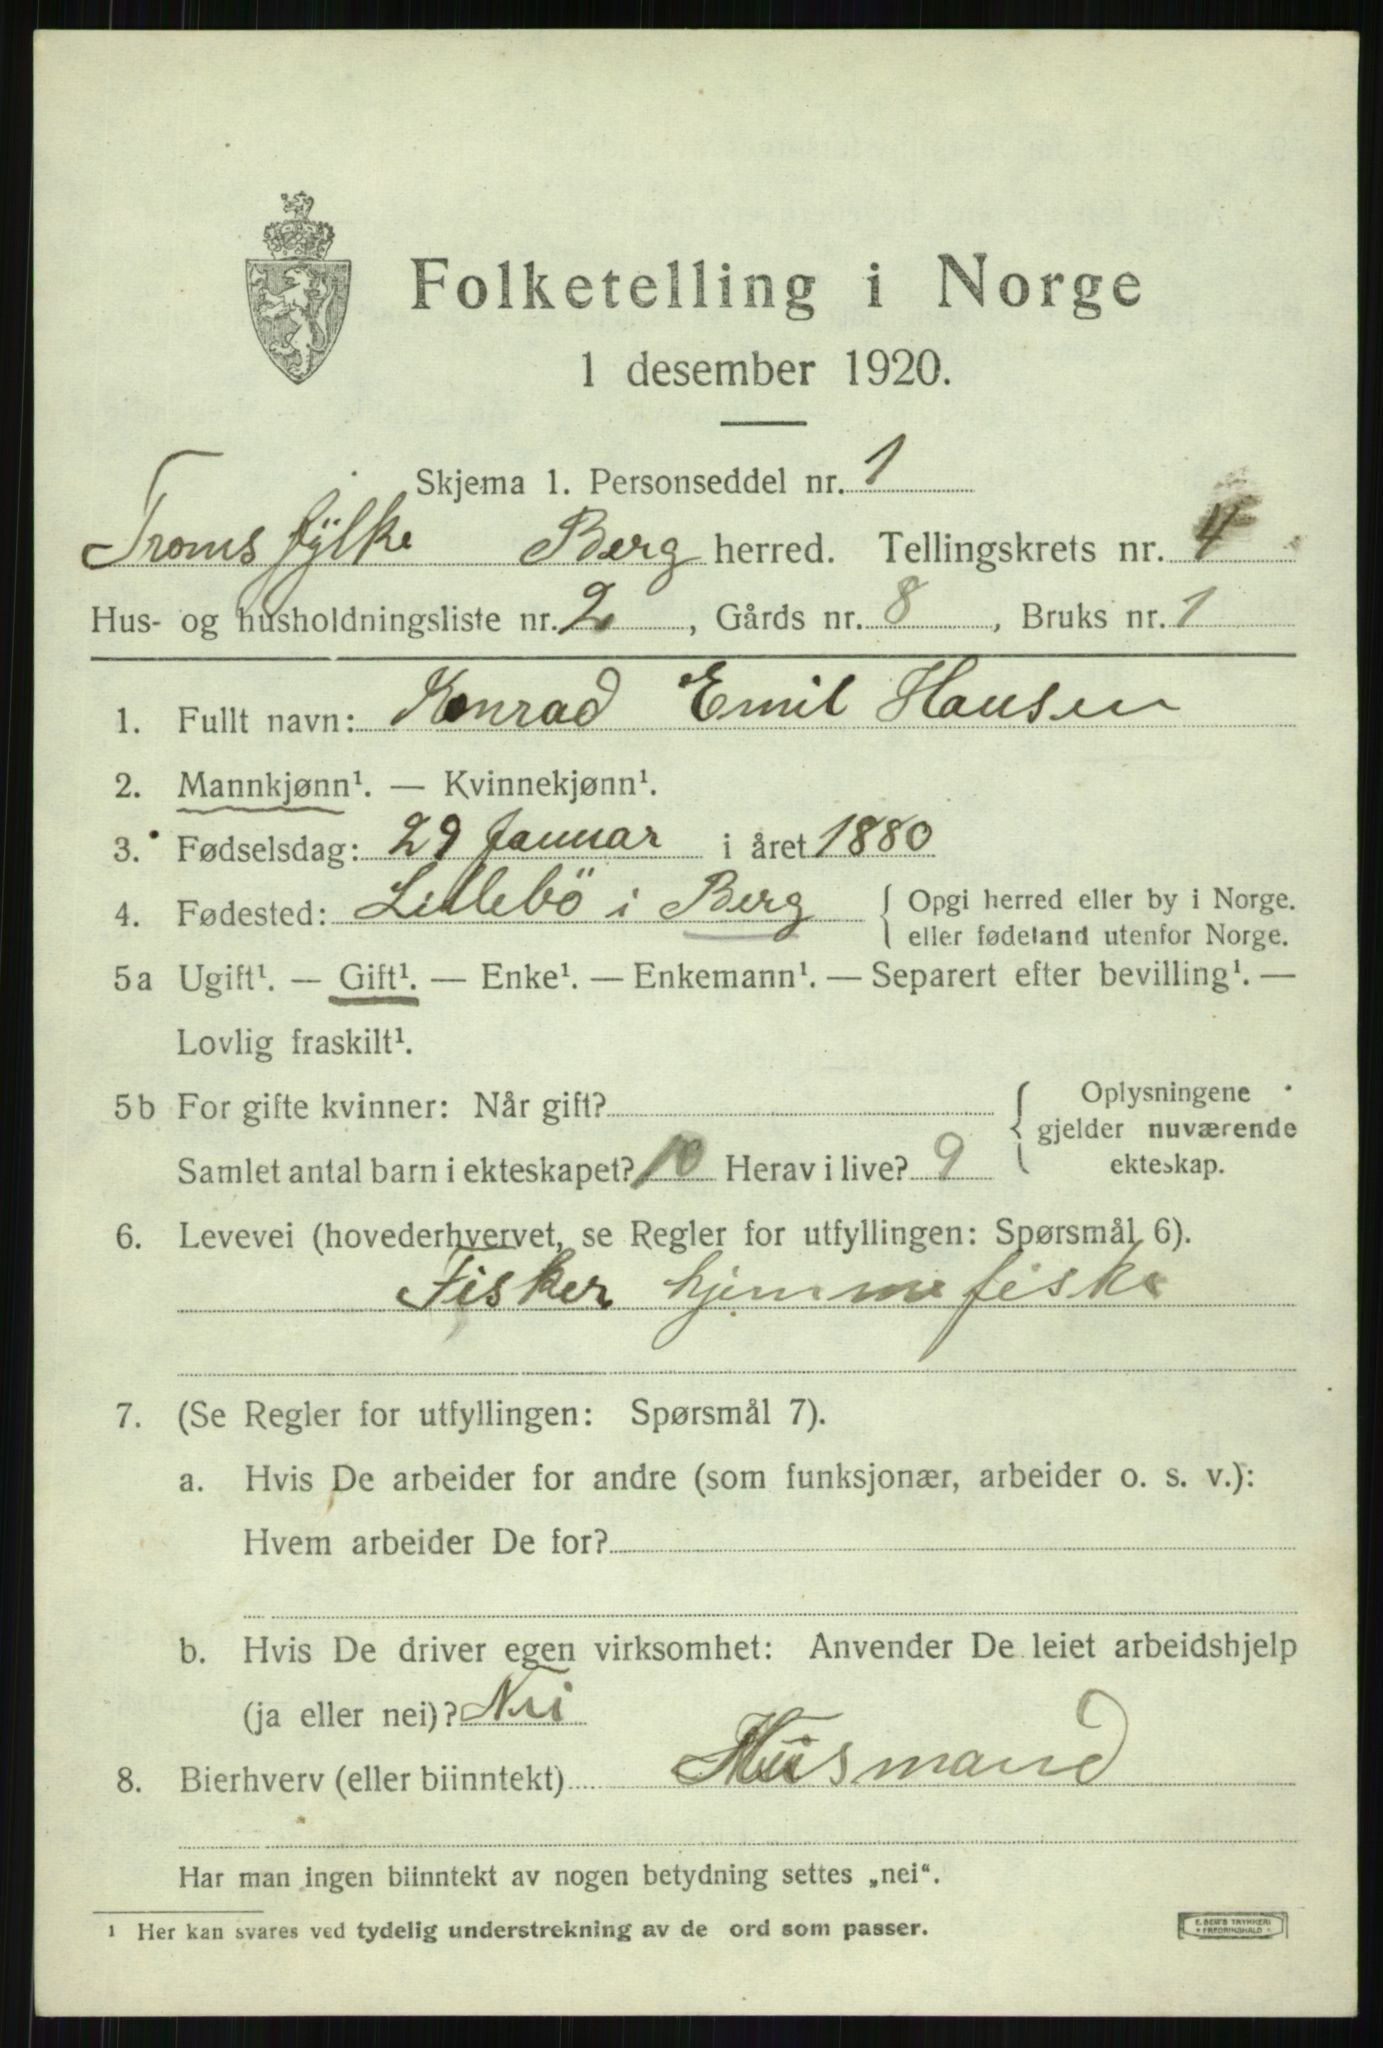 Folketelling i Norge
1 desember 1920.
Skjema 1. Personseddel nr. 1
Troms fylke Berg herred. Tellingskrets nr. 4
Hus- og husholdningsliste nr. 2, Gårds nr. 8, Bruks nr. 1
1. Fullt navn: Konrad Emil Hansen
2. Mannkjønn¹. — Kvinnekjønn¹.
3. Fødselsdag: 29 Januar i året 1880
4. Fødested: Lillebö i Berg { Opgi herred eller by i Norge.
eller fødeland utenfor Norge.
5a Ugift¹. — Gift¹. — Enke¹. — Enkemann¹. — Separert efter bevilling¹. —
Lovlig fraskilt¹.
5b For gifte kvinner: Når gift? { Oplysningene
gjelder nuværende
ekteskap.
Samlet antal barn i ekteskapet? 10 Herav i live? 9
6. Levevei (hovederhvervet, se Regler for utfyllingen: Spørsmål 6).
Fisker hjemmefiske
7. (Se Regler for utfyllingen: Spørsmål 7).
a. Hvis De arbeider for andre (som funksjonær, arbeider o. s. v.):
Hvem arbeider De for?
b. Hvis De driver egen virksomhet: Anvender De leiet arbeidshjelp
(ja eller nei)? Nei
8. Bierhverv (eller biinntekt) Husmand
Har man ingen biinntekt av nogen betydning settes „nei“.
¹ Her kan svares ved tydelig understrekning av de ord som passer.
E. SEM'S TRYKKERI
FREDRIKSHALD